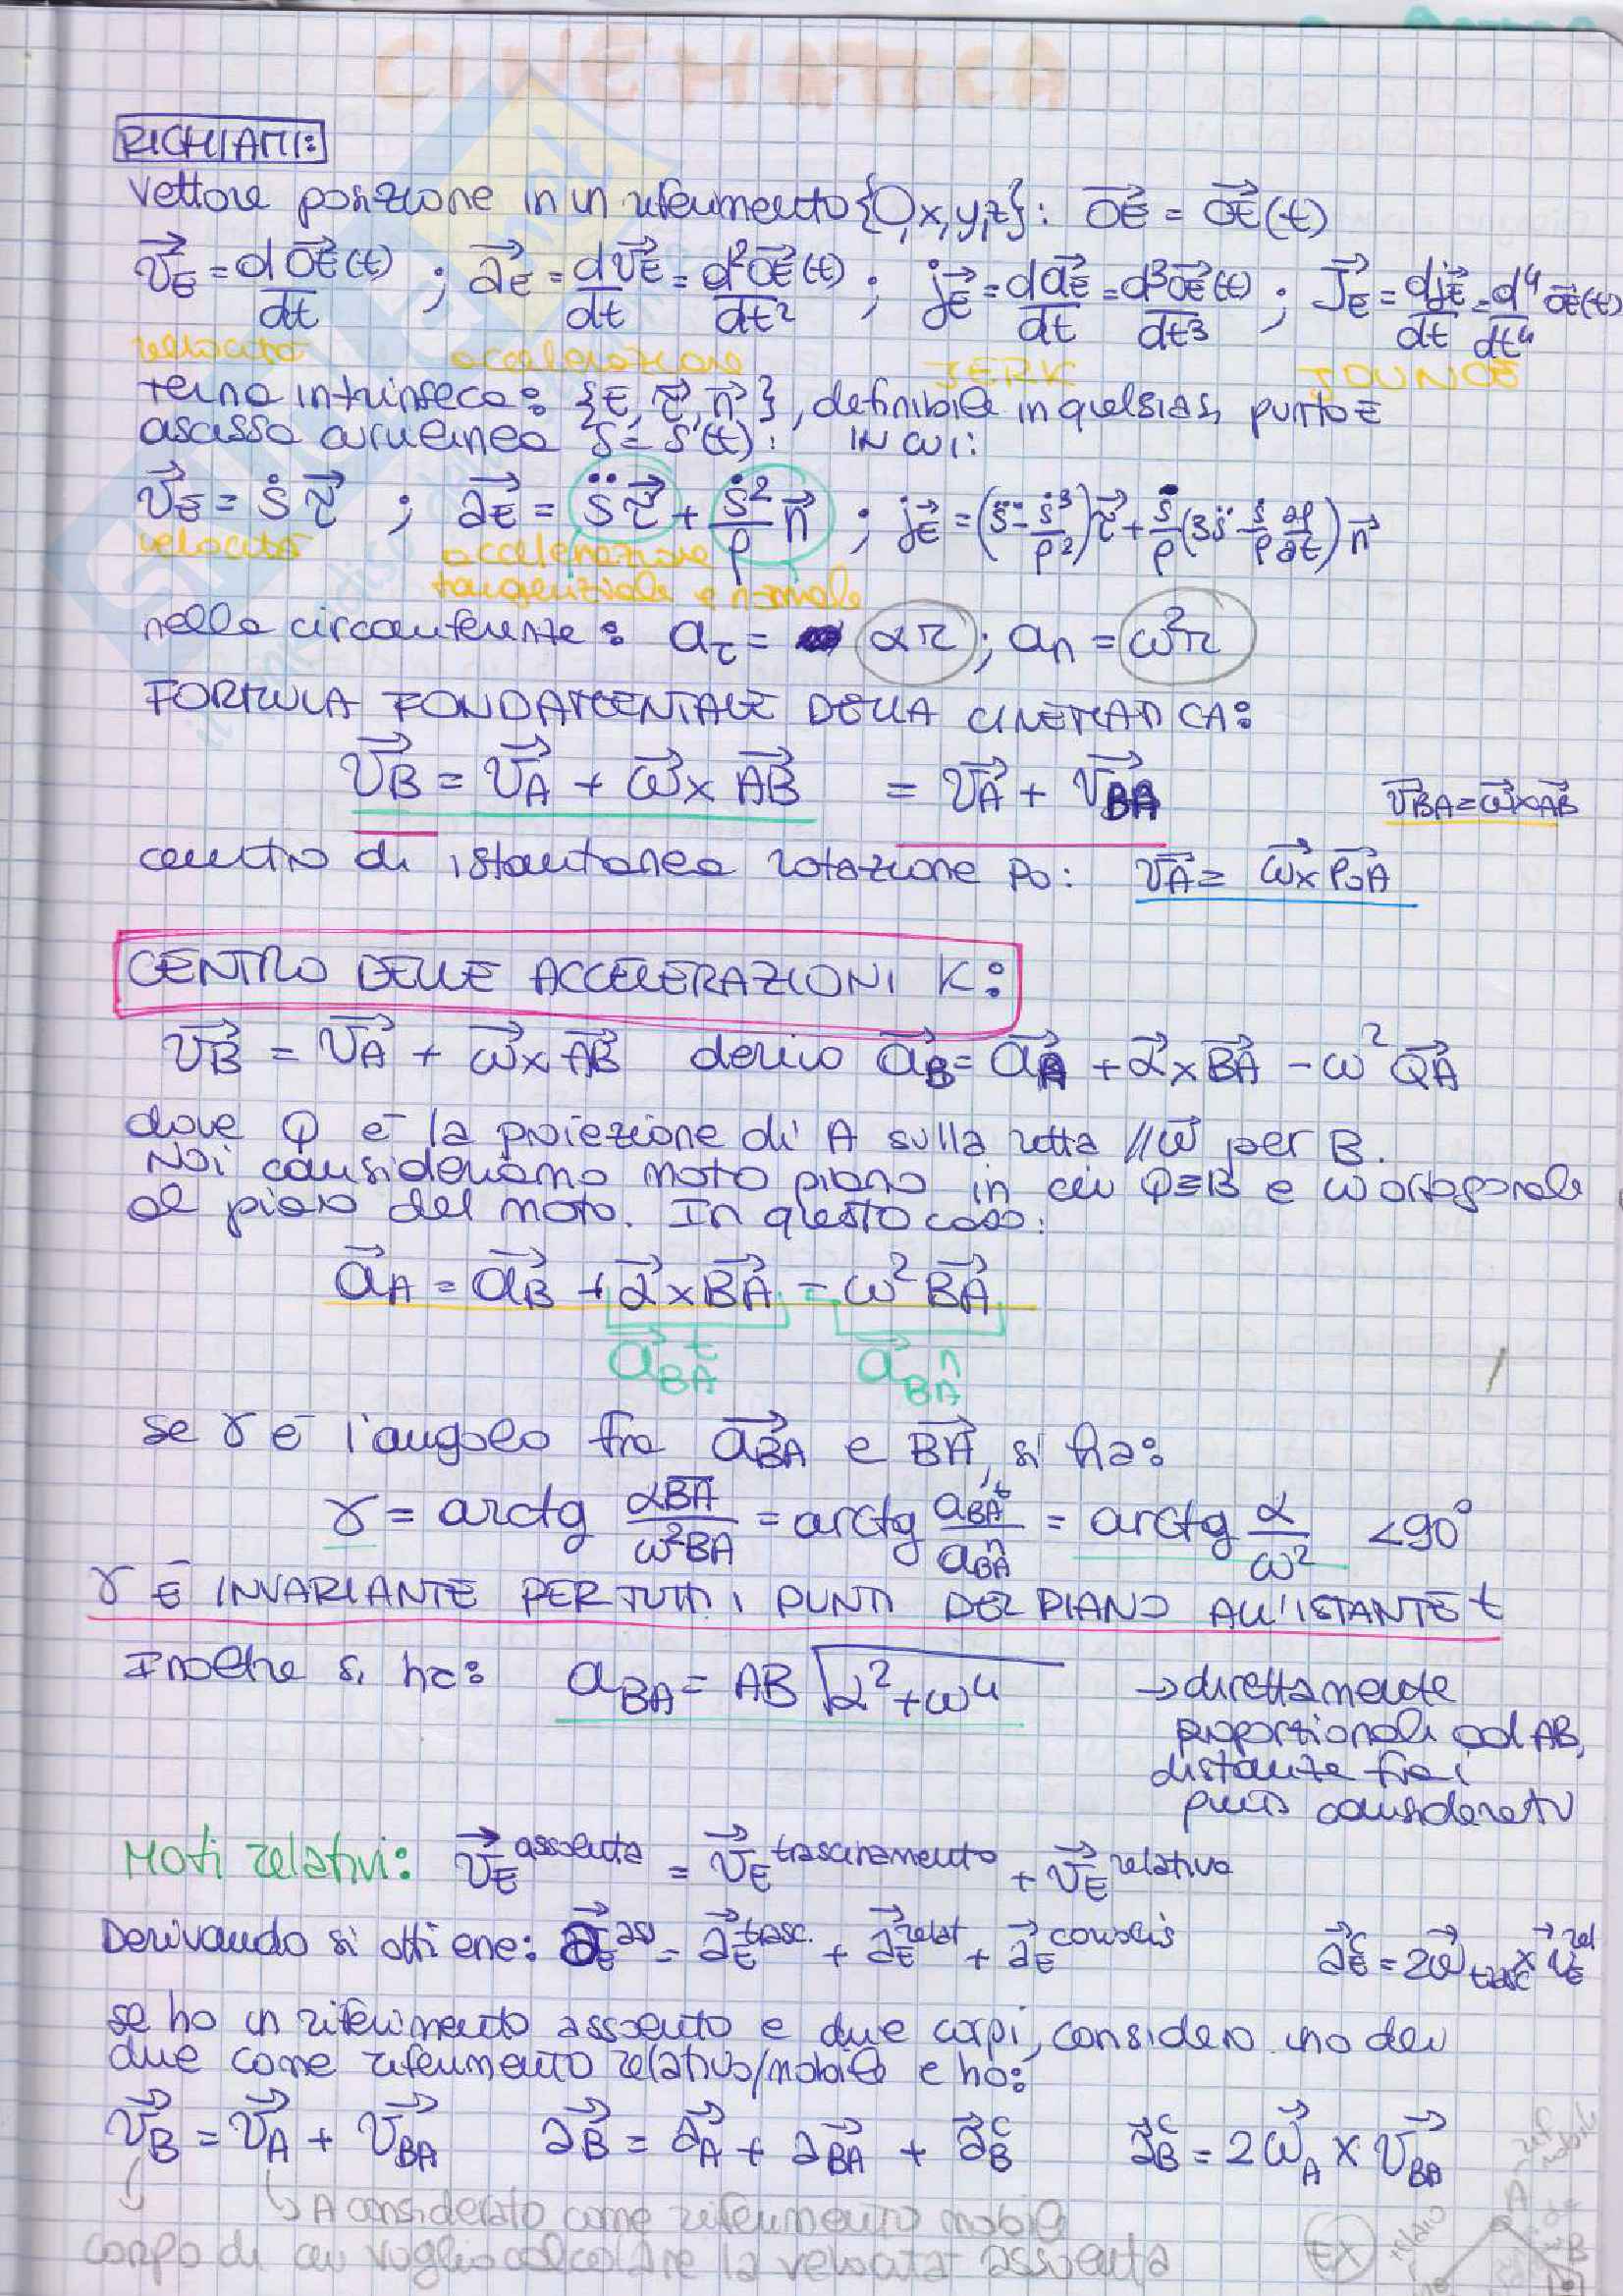 CINEMATICA
RICHIAMI:
Vettore posizione in un riferimento {O,x,y,z}: OE⃗ = OE⃗(t)
v⃗E = dOE⃗(t)/dt ; a⃗E = dv⃗E/dt = d²OE⃗(t)/dt² ; j⃗E = da⃗E/dt = d³OE⃗(t)/dt³ ; J⃗E = dj⃗E/dt = d⁴OE⃗(t)/dt⁴
velocità accelerazione JERK JOUNCE
terna intrinseca: {E, τ⃗, n⃗}, definibile in qualsiasi punto E
ascissa curvilinea s = s(t): IN CUI:
v⃗E = ṡ τ⃗ ; a⃗E = s̈ τ⃗ + ṡ²/ρ n⃗ ; j⃗E = (s⃛ - ṡ³/ρ²) τ⃗ + ṡ/ρ (3s̈ - ṡ/ρ ∂ρ/∂t) n⃗
velocità accelerazione
tangenziale e normale
nella circonferenza: aτ = αr ; an = ω²r
FORMULA FONDAMENTALE DELLA CINEMATICA:
v⃗B = v⃗A + ω⃗ × AB⃗ = v⃗A + v⃗BA v⃗BA = ω⃗×AB⃗
centro di istantanea rotazione P0: v⃗A = ω⃗ × P0A⃗
CENTRO DELLE ACCELERAZIONI K:
v⃗B = v⃗A + ω⃗ × AB⃗ derivo a⃗B = a⃗A + α⃗ × BA⃗ - ω² QA⃗
dove Q è la proiezione di A sulla retta // ω⃗ per B.
Noi consideriamo moto piano in cui Q≡B e ω ortogonale
al piano del moto. In questo caso:
a⃗A = a⃗B + α⃗ × BA⃗ - ω² BA⃗
a⃗BA^t a⃗BA^n
se γ è l'angolo fra a⃗BA e BA⃗, si ha:
γ = arctg αBA/ω²BA = arctg aBA^t/aBA^n = arctg α/ω² < 90°
γ È INVARIANTE PER TUTTI I PUNTI DEL PIANO ALL'ISTANTE t
Inoltre si ha: aBA = AB √(α² + ω⁴) → direttamente
proporzionale ad AB,
distanza fra i
punti considerati
Moti relativi: v⃗E^assoluta = v⃗E^trascinamento + v⃗E^relativa
Derivando si ottiene: a⃗E^ass = a⃗E^trasc. + a⃗E^relat + a⃗E^coriolis a⃗E^c = 2ω⃗trasc × v⃗E^rel
se ho un riferimento assoluto e due corpi, considero uno dei
due come riferimento relativo/mobile e ho:
v⃗B = v⃗A + v⃗BA a⃗B = a⃗A + a⃗BA + a⃗B^c a⃗B^c = 2ω⃗A × v⃗BA
↳ A considerato come riferimento mobile
corpo di cui voglio calcolare la velocità assoluta
EX
telaio
A
rif
mobile
B